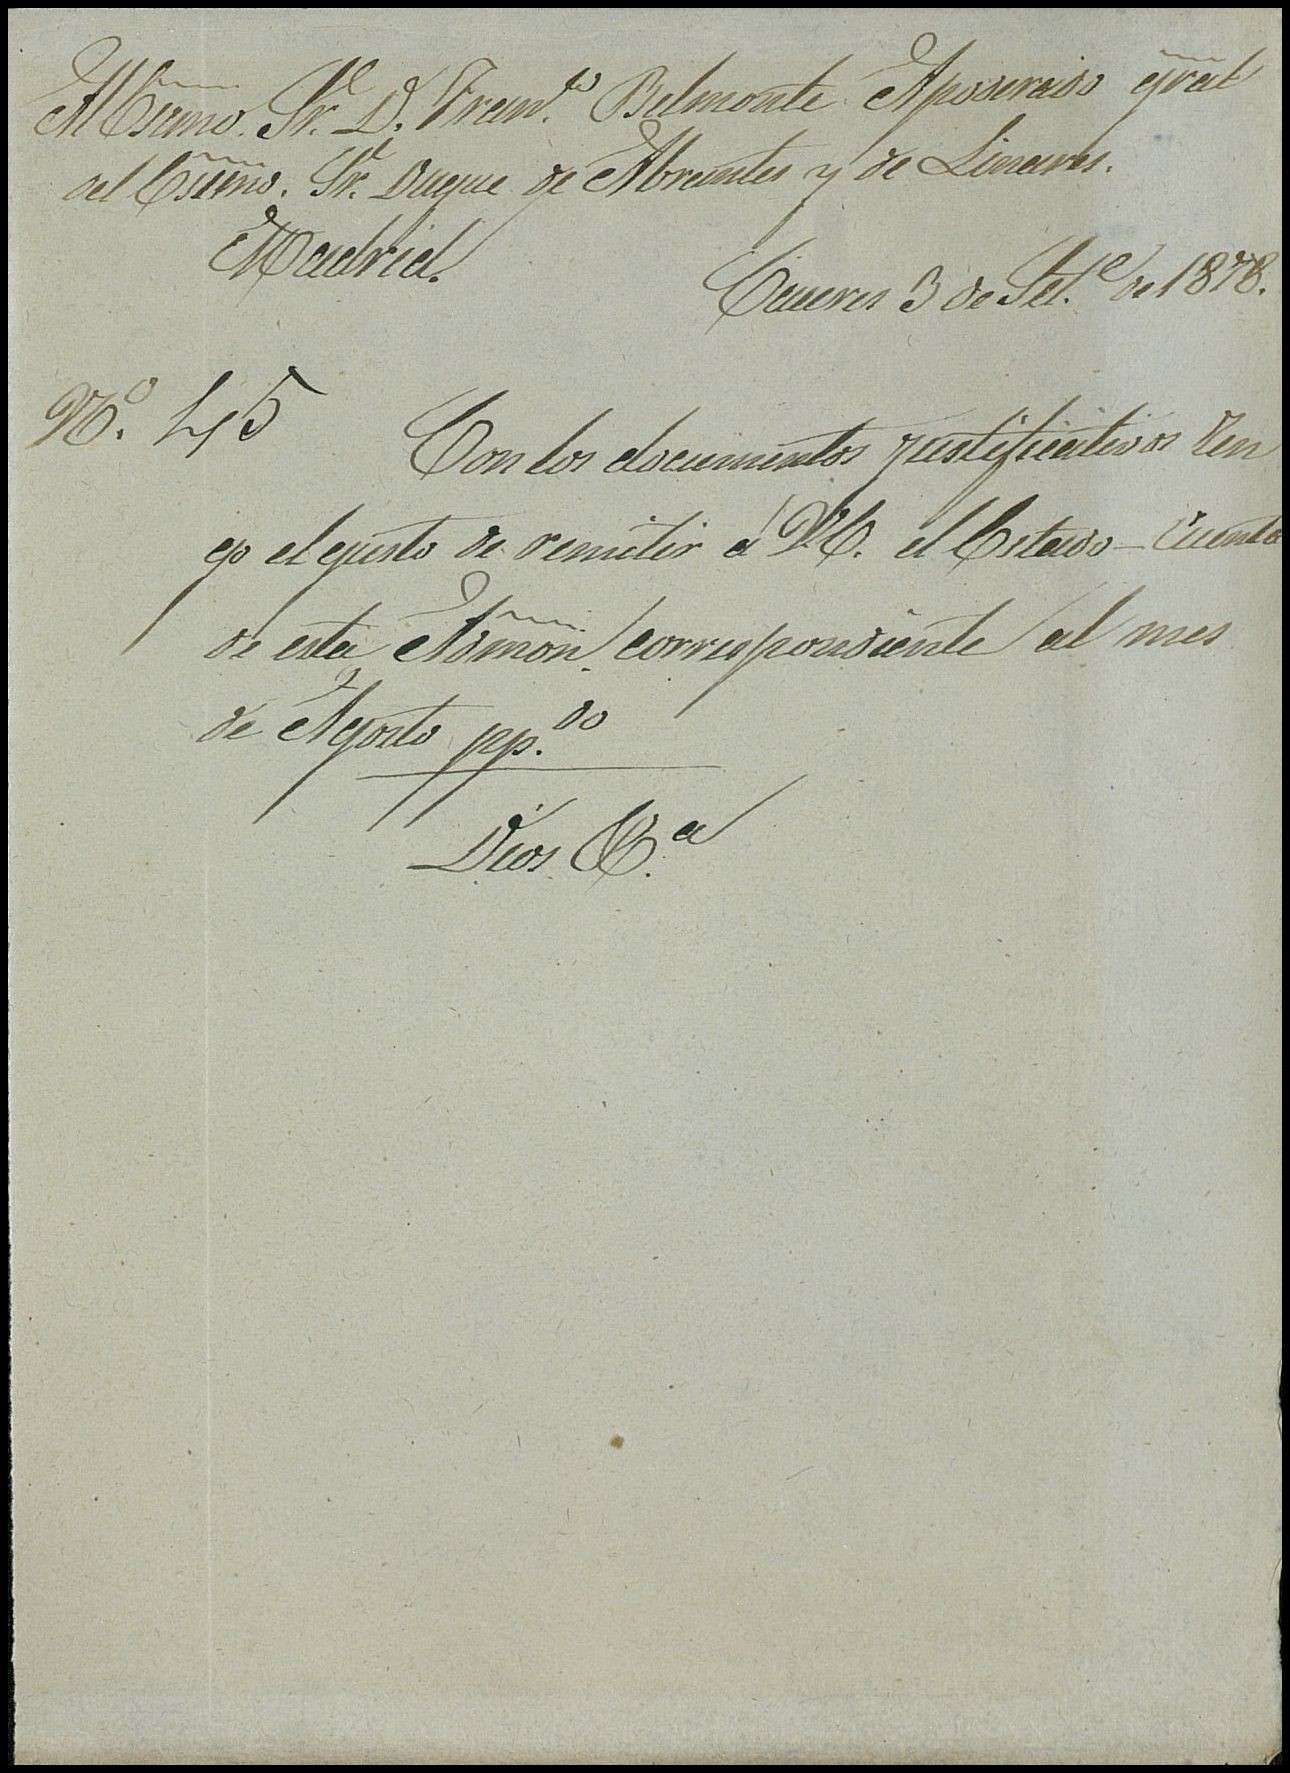 Al Esmo. Sr. D. Fran.co Belmonte Apoderado gral
del Esmo. Sr. Duque de Abrantes y de Linares.
Madrid.
Cáceres 3 de Set.e de 1878.
N.o 45
Con los documentos justificativos ten
go el gusto de remitir á V.E. el Estado-Cuenta
de esta Admon. correspondiente al mes
de Agosto pp.do
Dios &.a